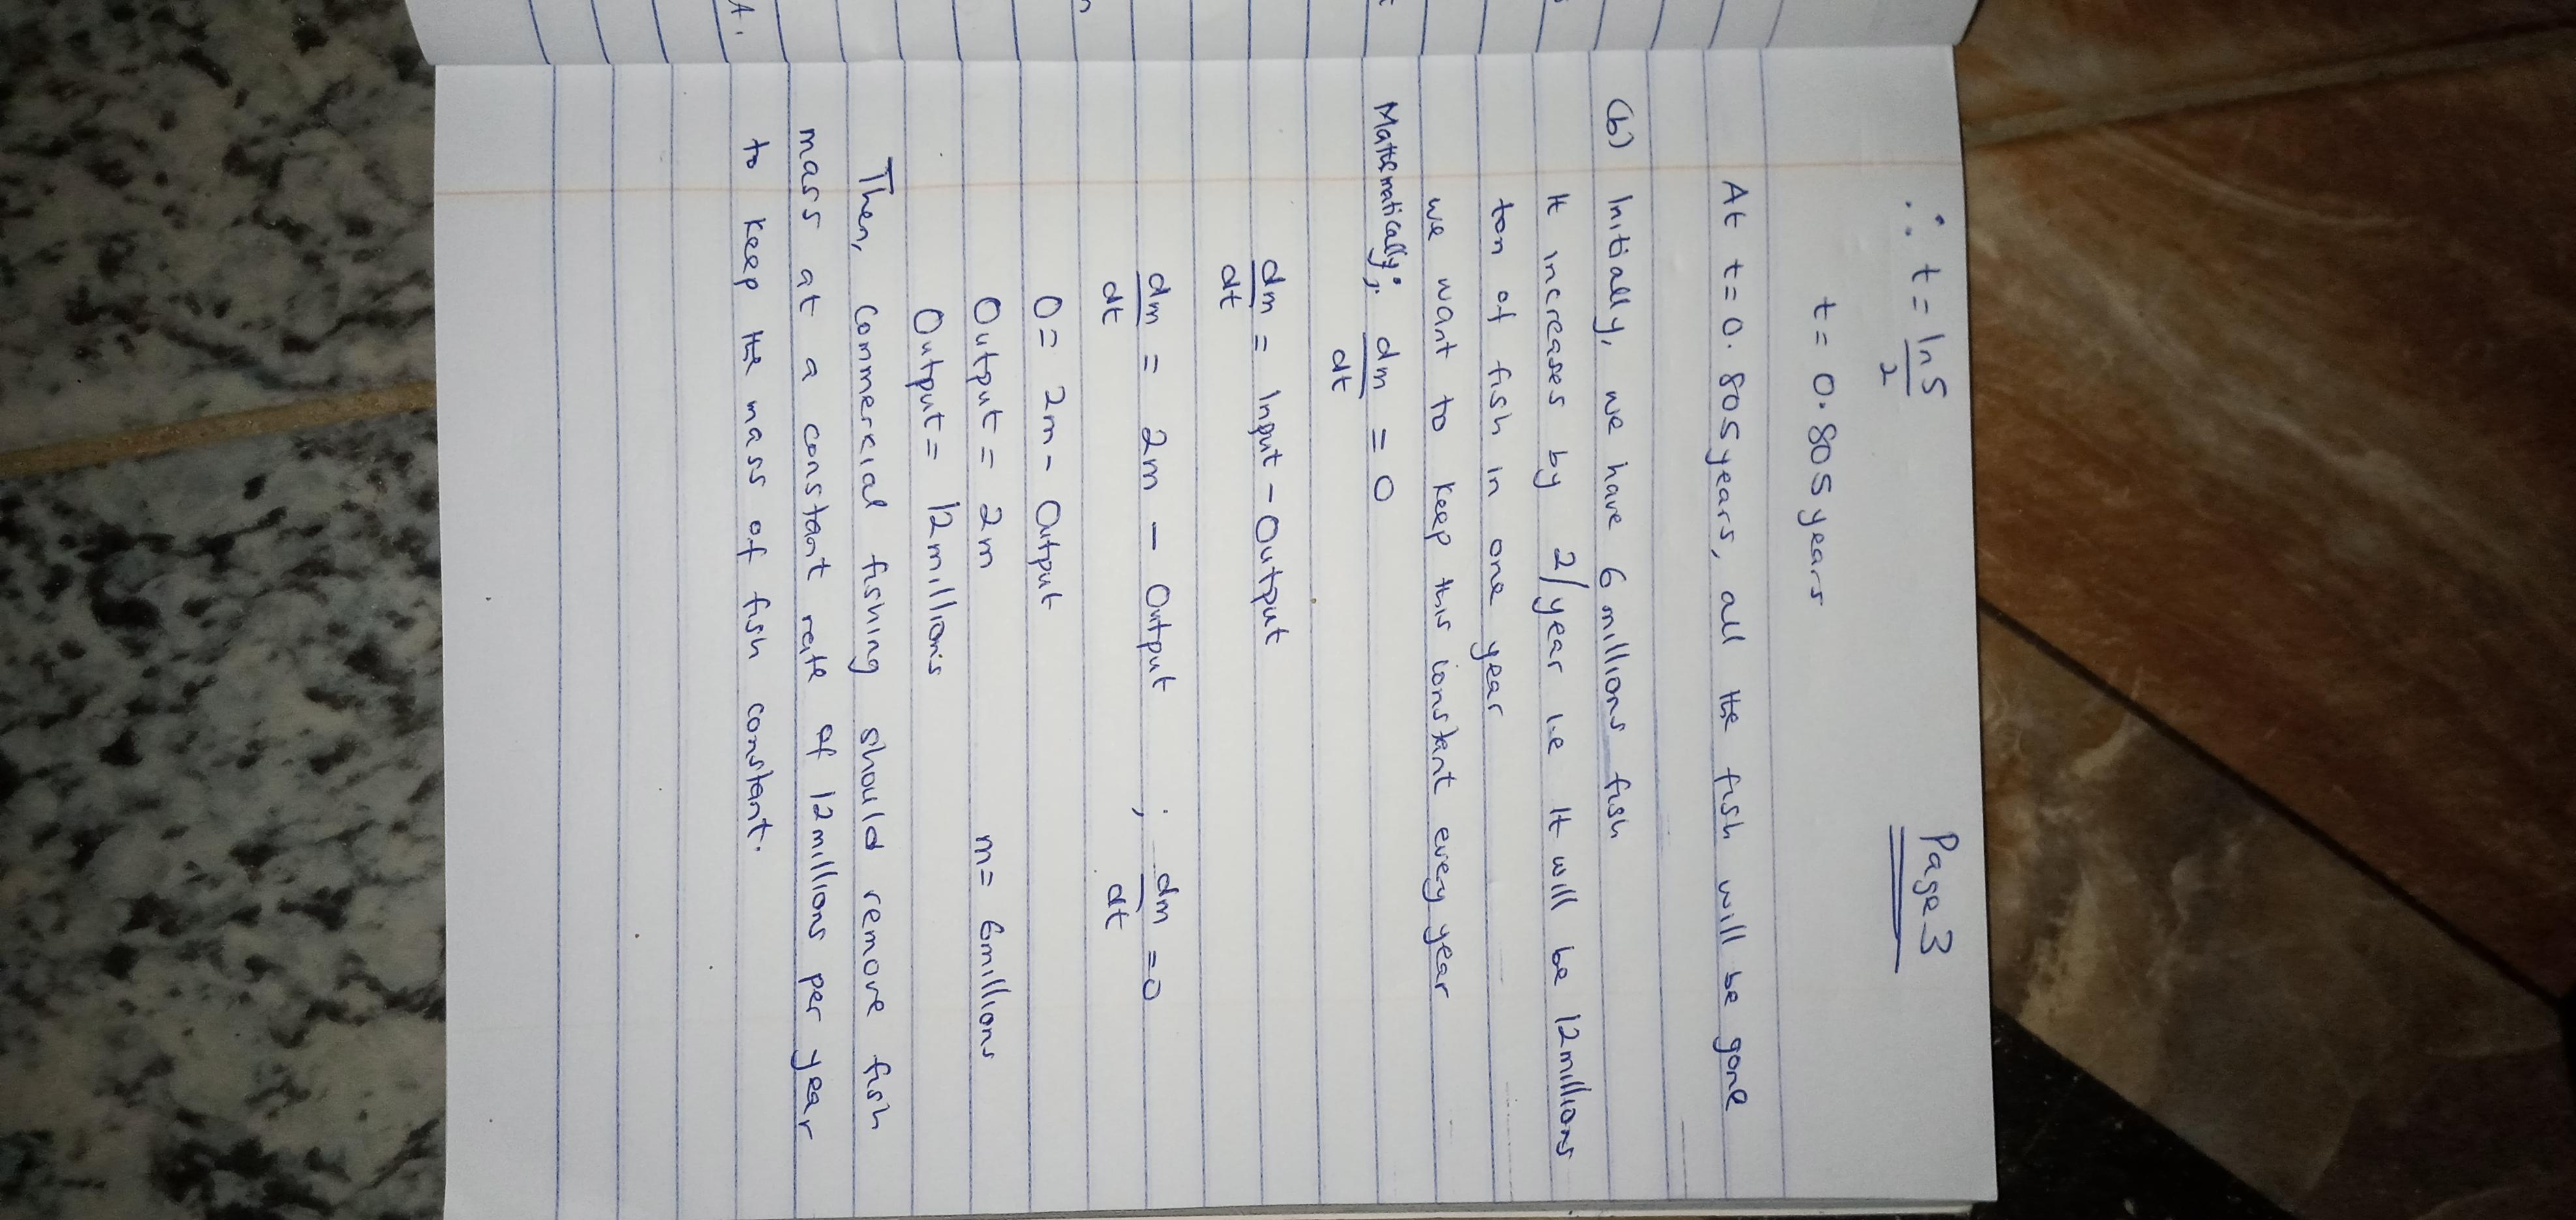 Page 3
∴ t = ln5/2
t = 0.805 years
At t = 0.805 years, all the fish will be gone
(b) Initially, we have 6 millions fish
It increases by 2/year i.e It will be 12 millions
ton of fish in one year
we want to keep this constant every year
Mathematically; dm/dt = 0
dm/dt = Input - Output
dm/dt = 2m - Output ; dm/dt = 0
0 = 2m - Output
Output = 2m m = 6 millions
Output = 12 millions
Then, Commercial fishing should remove fish
mass at a constant rate of 12 millions per year
to keep the mass of fish constant.